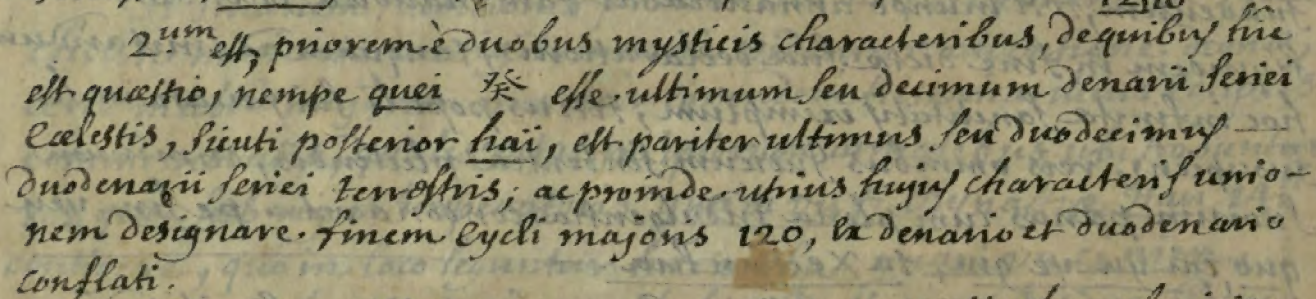 2um est, priorem è duobus mysticis characteribus, de quibus hic
est quæstio, nempe quei 癸 esse ultimum seu decimum denarii seriei
cælestis, sicuti posterior haï, est pariter ultimus seu duodecimus
duodenarii seriei terrestris; ac proinde utrius hujus characteris unio-
nem designare finem Cycli majoris 120, ex denario et duodenario
conflati.